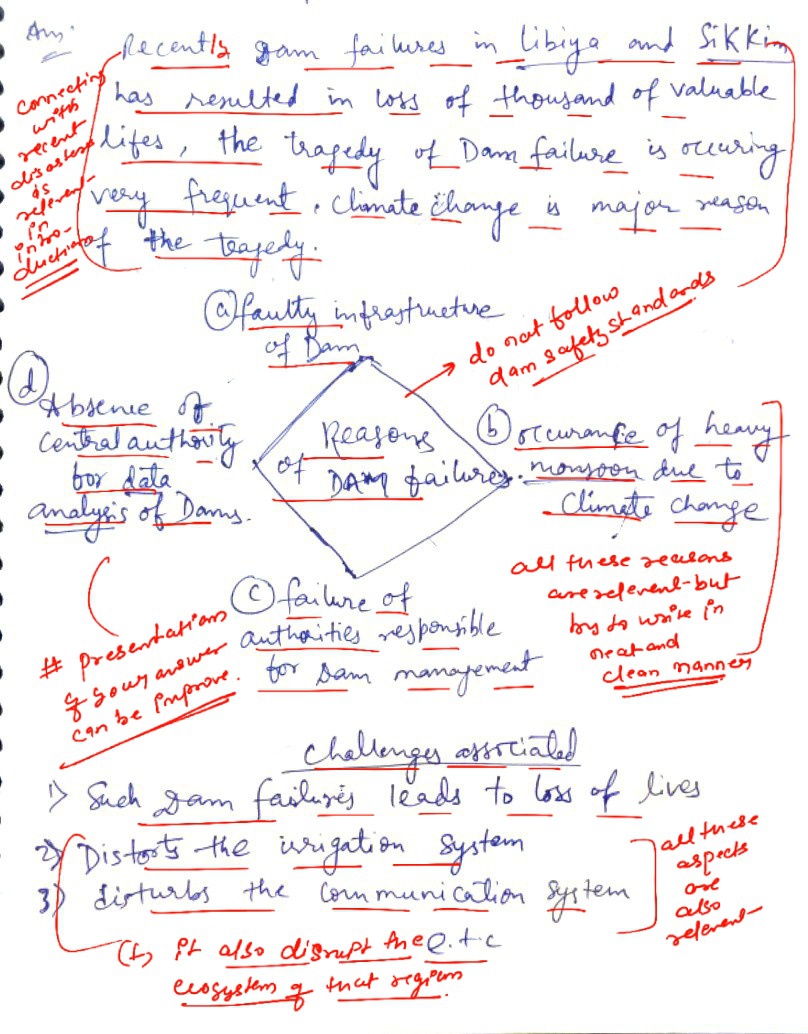 Ans:
Recently Dam failures in Libiya and Sikkim
has resulted in loss of thousand of valuable
lifes, the tragedy of Dam failure is occuring
very frequent. Climate change is major reason
of the tragedy.
connecting
with
recent
disasters
is
relevent
in
intro-
duction
(a) faulty infrastructure
of Dam
do not follow
dam safety standards
(d)
Absence of
central authority
for data
analysis of Dams.
Reasons
of DAM failures.
(b) occurance of heavy
monsoon due to
Climate change
all these reasons
are relevent but
try to write in
neat and
clean manner
(c) failure of
authorities responsible
for Dam management
# presentation
of your answer
can be improve.
Challenges associated
1) Such Dam failures leads to loss of lives
2) Distorts the irrigation system
3) disturbs the communication system
e.t.c
all these
aspects
are
also
relevent
it also disrupt the
ecosystem of that region